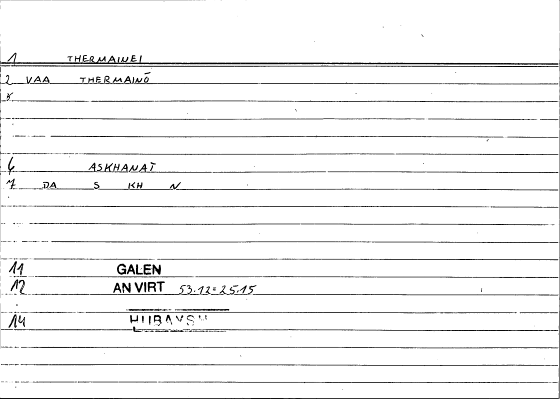 1 THERMAINEI
2 VAA THERMAINŌ
6 ASKHANAT
7 DA S KH N
11 GALEN
12 AN VIRT 53.12=25.15
14